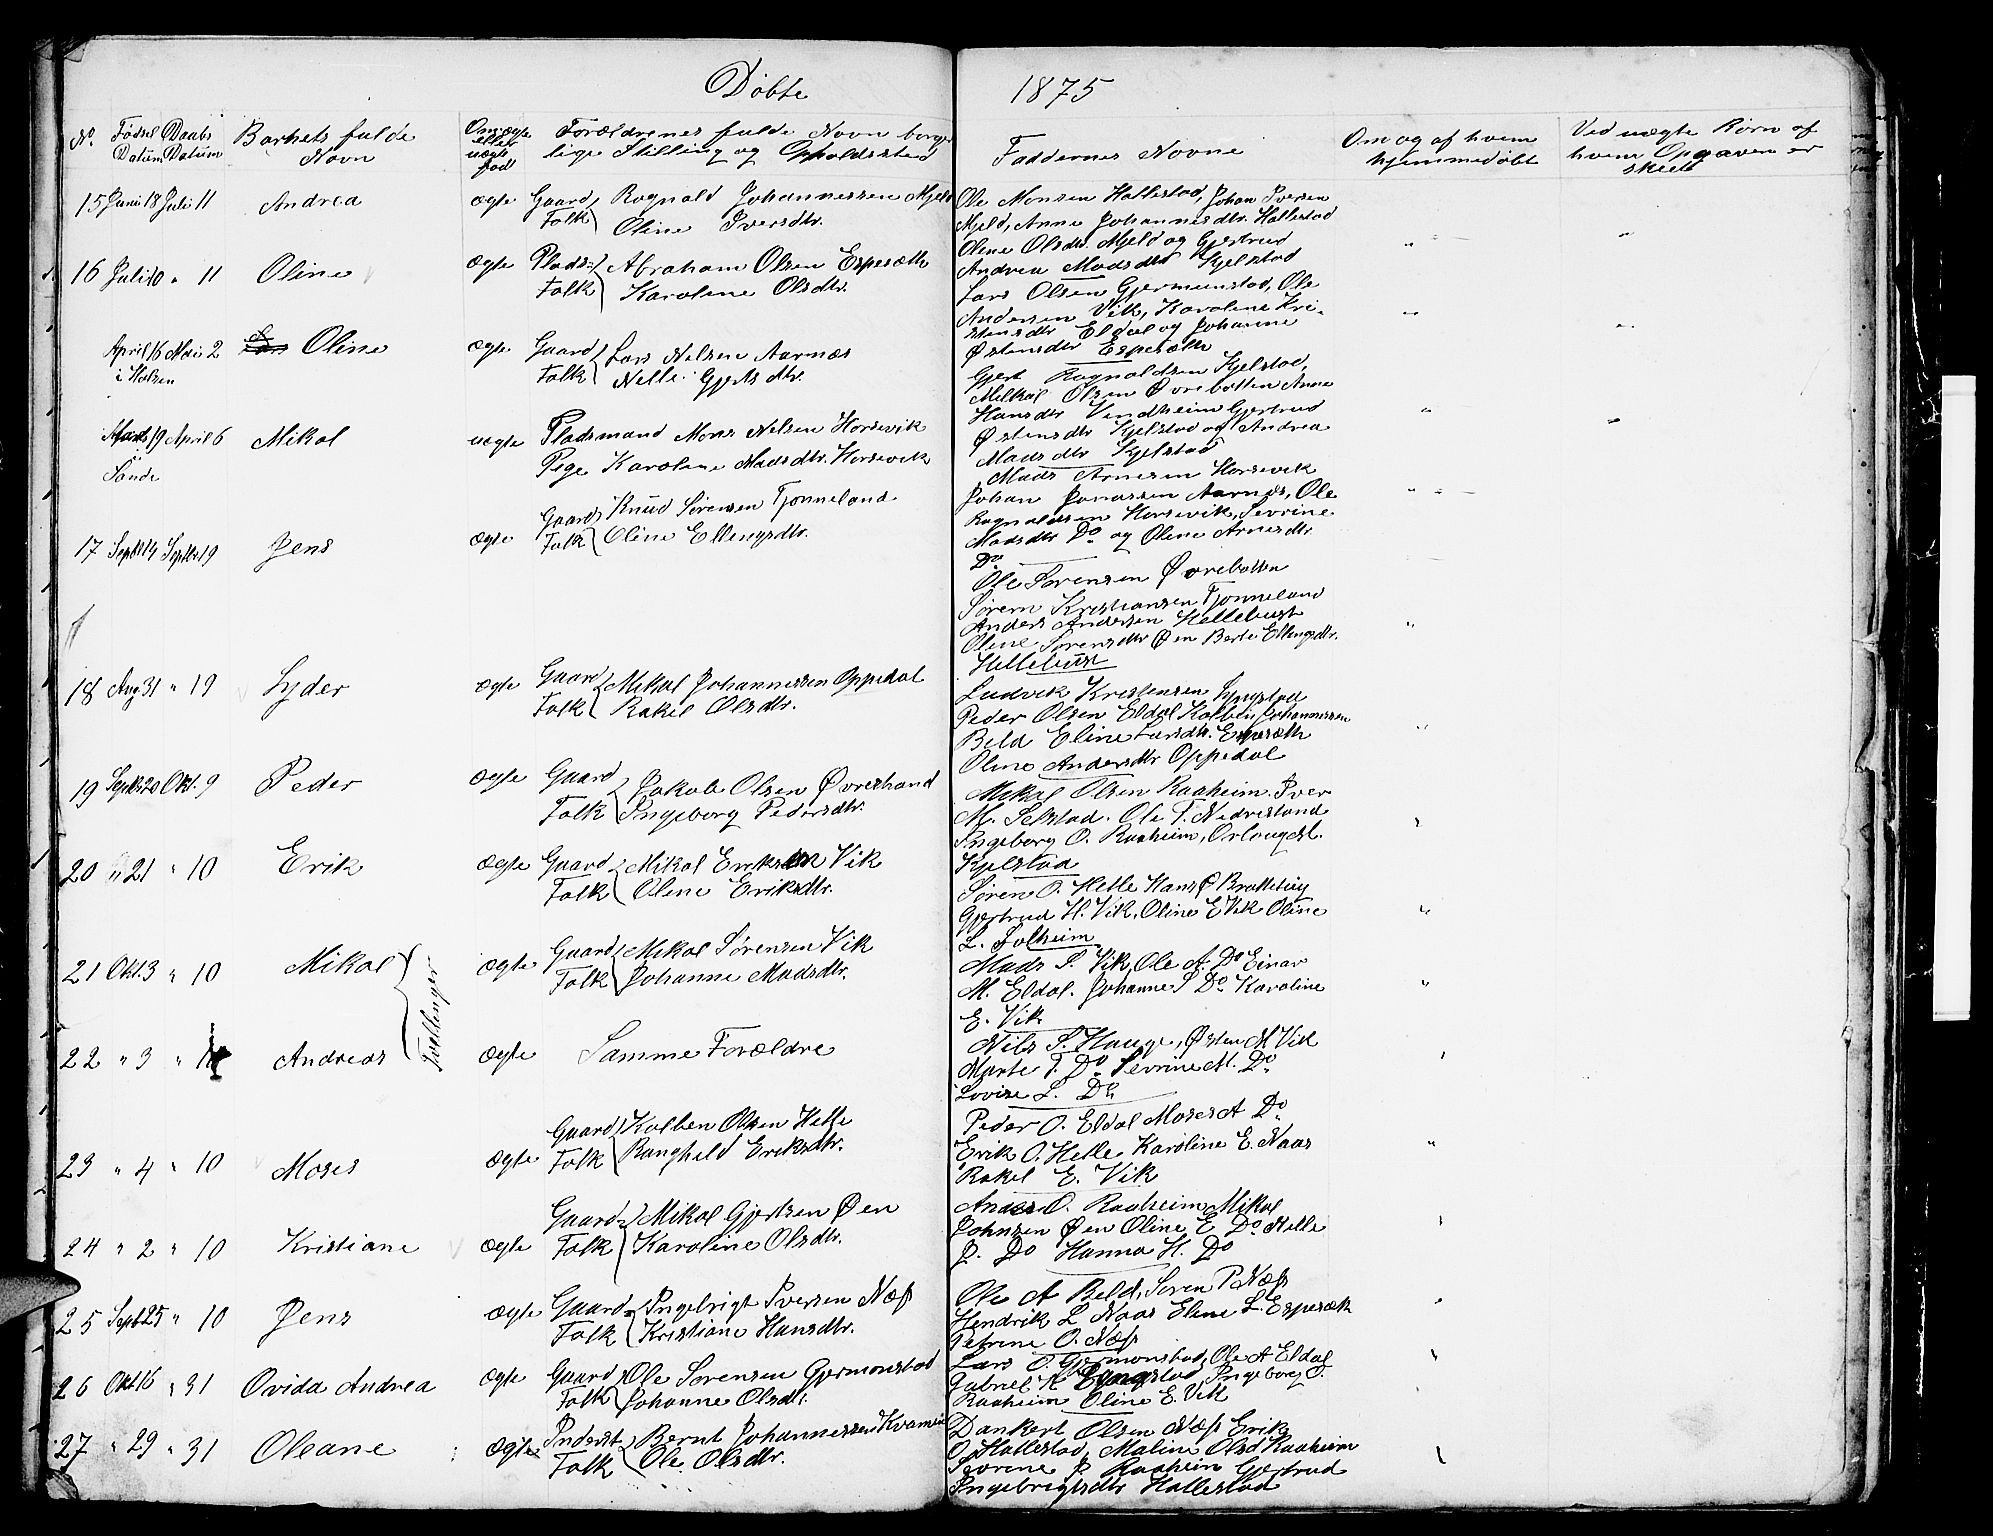 Døbte 1875
No. Fødsel Datum Daabs Datum Barnets fulde Navn Om ægte eller uægte fød Forældrenes fulde Navn borgerlige Stilling og Opholdssted Faddernes Navne Om og af hvem hjemmedøbt Ved uægte Børn af hvem Opgaven er skeet
15 Juni 18 Juli 11 Andrea ægte Gaard Folk Rognald Johannessen Mjeld
Oline Iversdtr.
Ole Monsen Hallestad, Johan Iversen
Mjeld, Anne Johannesdtr. Hallestad
Oline Olsdtr. Mjeld og Gjertrud
Andrea Madsdtr Kjelstad
16 Juli 10 " 11 Oline ægte Plads- Folk Abraham Olsen Espesæth
Karoline Olsdtr.
Lars Olsen Gjermunstad, Ole
Andersen Vik, Karoline Kri-
stensdtr Eldal og Johanne
Østensdtr Espesæth
April 16 Mai 2 Oline ægte Gaard Folk Lars Nelsen Aarnæs
i Holsen Nelle Gjertsdtr.
Gjert Rognaldsen Kjelstad,
Mikal Olsen Øvrebotten Anne
Hansdtr Vindheim Gjertrud
Østensdtr Kjelstad og Andrea
Madsdtr Kjelstad
Marts 19 April 6 Mikal uægte Pladsmand Mons Nelsen Horsevik
Sande Pige Karoline Madsdtr. Horsevik
Mads Arnesen Horsevik
Johan Jonassen Aarnæs, Ole
Rognaldsen Horsevik, Sevrine
Madsdtr Do og Oline Arnesdtr.
Do
17 Septbr 14 Septbr 19 Jens ægte Gaard Folk Knud Sørensen Tjønneland
Oline Ellingsdtr.
Ole Sørensen Øvrebotten
Sørem Kristiansen Tjønneland
Anders Andersen Hellebust
Oline Sørensdtr Øen Berte Ellingsdtr.
Hellebust
18 Aug 31 " 19 Lyder ægte Gaard Folk Mikal Johannessen Oppedal
Rakel Olsdtr.
Ludvik Kristensen Lyngstad
Peder Olsen Eldal Kolben Johannessen
Beld Eline Larsdtr. Espesæth
Oline Andersdtr Oppedal
19 Septbr 20 Okt. 9 Peder ægte Gaard Folk Jakob Olsen Øvrestrand
Ingeborg Pedersdtr.
Mikal Olsen Raaheim. Iver
M. Selstad. Ole T. Nedrestand
Ingeborg O. Raaheim,
Kjelstad
20 " 21 " 10 Erik ægte Gaard Folk Mikal Eriksen Vik
Oline Eriksdtr.
Søren O. Helle Hans Ø Brattebùg
Gjertrud H. Vik, Oline E Vik Oline
L. Solheim
21 Okt. 3 " 10 Mikal ægte Gaard Folk Mikal Sørensen Vik
Johanne Madsdtr.
Tvillinger
Mads S. Vik, Ole A. Do Einar
M. Eldal. Johanne S Do. Karoline
E. Vik
22 " 3 " 10 Andreas ægte Samme Forældre
Nils S. Hauge, Østen M Vik
Marte T. Do Sevrine M. Do
Lovise L. Do
23 " 4 " 10 Moses ægte Gaard Folk Kolben Olsen Helle
Rangheld Eriksdtr.
Peder O. Eldal Moses A Do
Erik O. Helle Karoline E. Naas
Rakel E. Vik
24 " 2 " 10 Kristiane ægte Gaard Folk Mikal Gjertsen Øen
Karoline Olsdtr.
Anders O. Raaheim Mikal
Johnsen Øen Oline E Do Nelle
J. Do Hanna H. Do
25 Sept 25 " 10 Jens ægte Gaard Folk Ingebrigt Iversen Næss
Kristiane Hansdtr.
Ole A Beld, Søren P Næss
Hendrik L Naas Eline L. Espesæth
Petrine O. Næss
26 Okt 16 " 31 Ovida Andrea ægte Gaard Folk Ole Sørensen Gjermonstad
Johanne Olsdtr.
Lars O. Gjermonstad, Ole A Eldal
Gabriel K Lyngstad Ingeborg O.
Raaheim Oline E. Vik
27 " 29 " 31 Oleane ægte Inderst Folk Bernt Johannessen Kvammen
Ole Olsdtr.
Dankert Olsen Næss Erik
O. Hallestad, Maline Olsd Raaheim
Sevrine J. Raaheim Gjertrud
Ingebrigtsdtr Hallestad